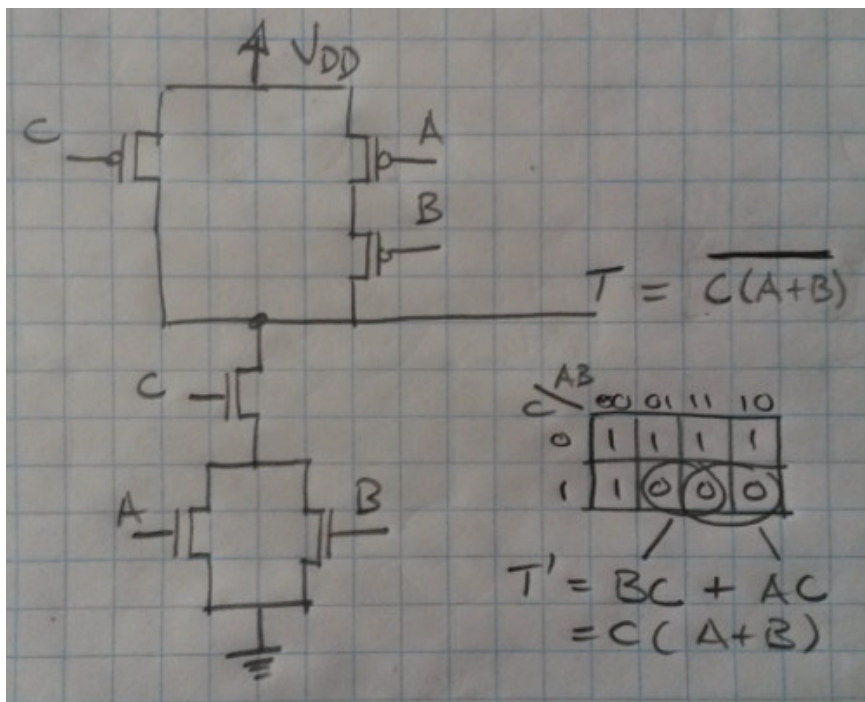 V_DD
C
A
B
T = \overline{C(A+B)}
C
C \ AB 00 01 11 10
0 1 1 1 1
1 1 0 0 0
A
B
T' = BC + AC
= C(A+B)